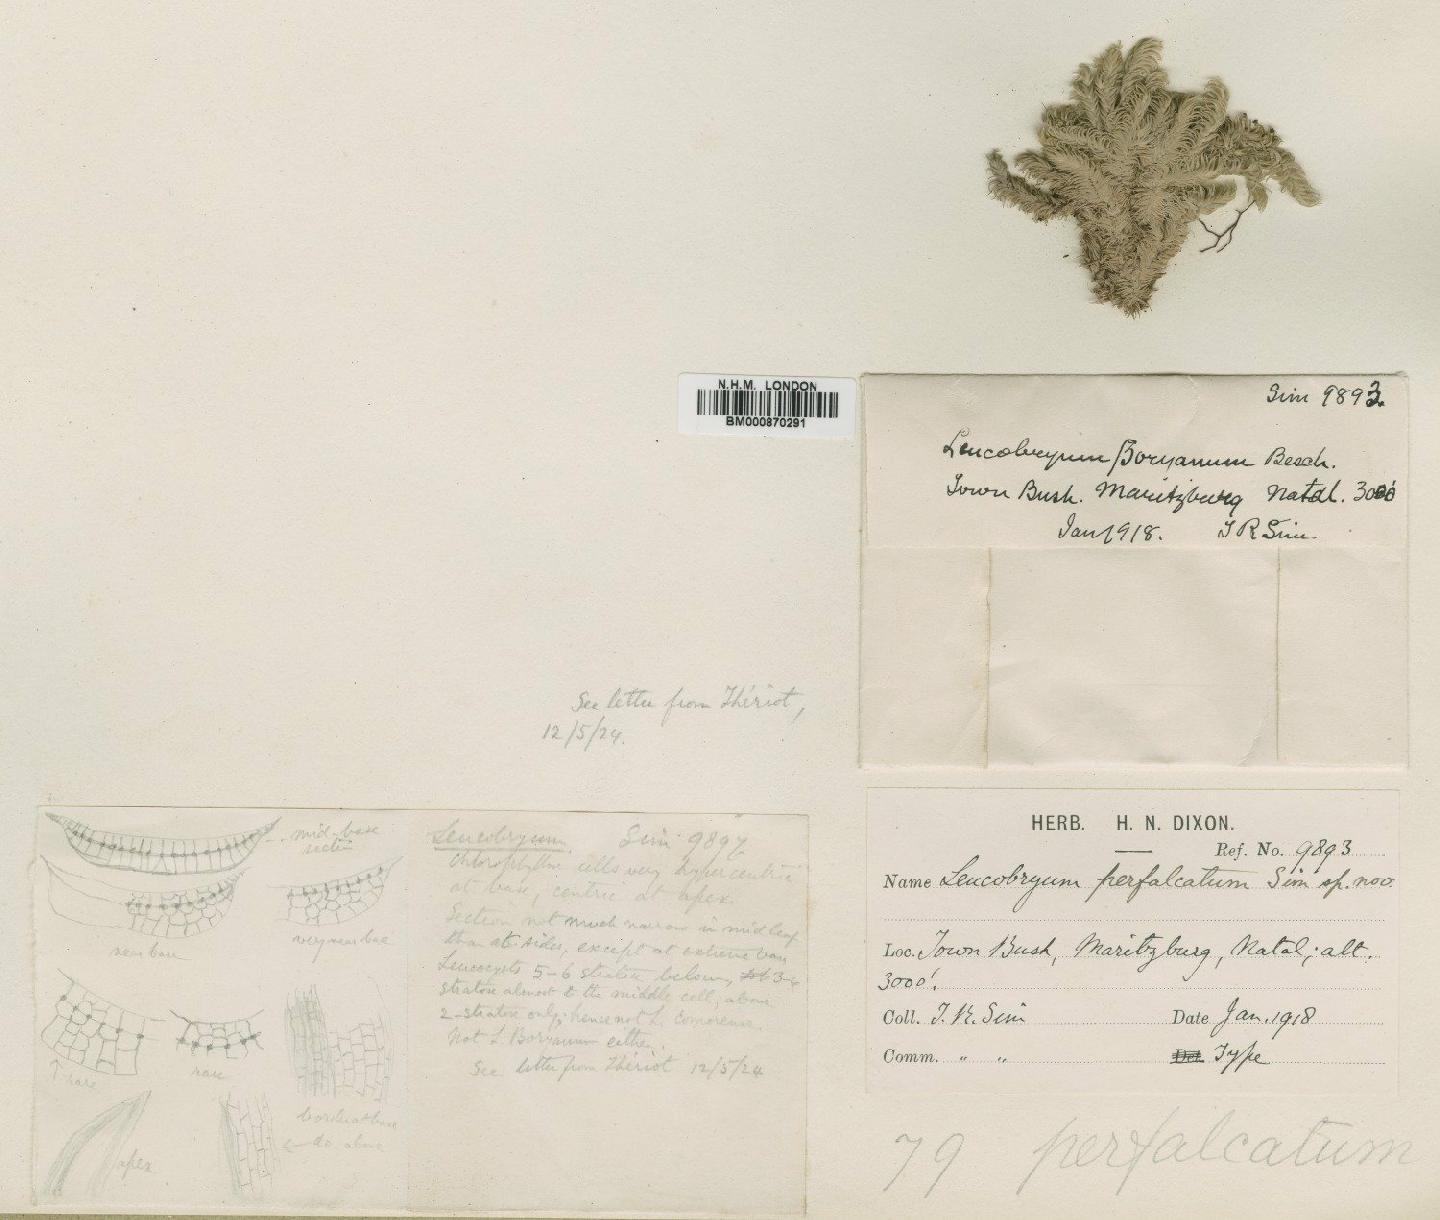 N.H.M. LONDON
BM000870291
Sim 9893.
Leucobryum Boryanum Besch.
Town Bush. Maritzburg Natal. 3000'
Jan 1918. T R Sim.
See letter from Thériot,
12/5/24.
mid-base
section
near base
very near base
rare
rare
apex
border at base
do. above
Leucobryum. Sim 989
Chlorophyllose cells very hypercentric
at base, centric at apex.
Section not much narrow in mid leaf
than at sides, except at extreme base
Leucocysts 5-6 stratose below, 3-4
stratose almost to the middle cell, above
2-stratose only; hence not L. Comorense.
Not L Boryanum either.
See letter from Thériot 12/5/24
HERB. H. N. DIXON.
Ref. No. 9893
Name Leucobryum perfalcatum Sim sp. nov.
Loc. Town Bush, Maritzburg, Natal; alt.
3000'.
Coll. T. R. Sim Date Jan. 1918
Comm. " " Det. Type
79 perfalcatum